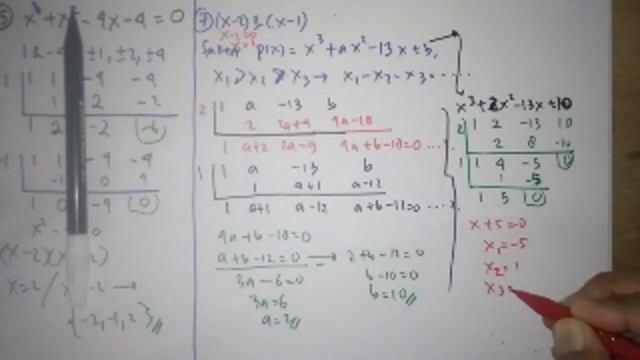 5) x³ + x² - 4x - 4 = 0
±1, ±2, ±4
1 1 -4 -4
1 2 -2
1 2 -2 (-6)
-1 1 -4 -4
-1 0 4
1 0 -4 (0)
x²
(x-2)(x
x=2 /
{-2,-1,2}
7) (x-2) & (x-1)
p(x) = x³ + ax² - 13x + b,
x₁ > x₂ > x₃ → x₁ - x₂ - x₃ = ....
2 1 a -13 b
2 2a+4 4a-18
1 a+2 2a-9 4a+b-18=0 ...
1 1 a -13 b
1 a+1 a-12
1 a+1 a-12 a+b-12=0 ...
4a+b-18=0
a+b-12=0 → 2+b-12=0
3a-6=0 b-10=0
3a=6 b=10
a=2
x³+2x²-13x+10
2 1 2 -13 10
2 8 -10
1 1 4 -5 (0)
1 -5
1 5 (0)
x+5=0
x₁=-5
x₂=1
x₃=